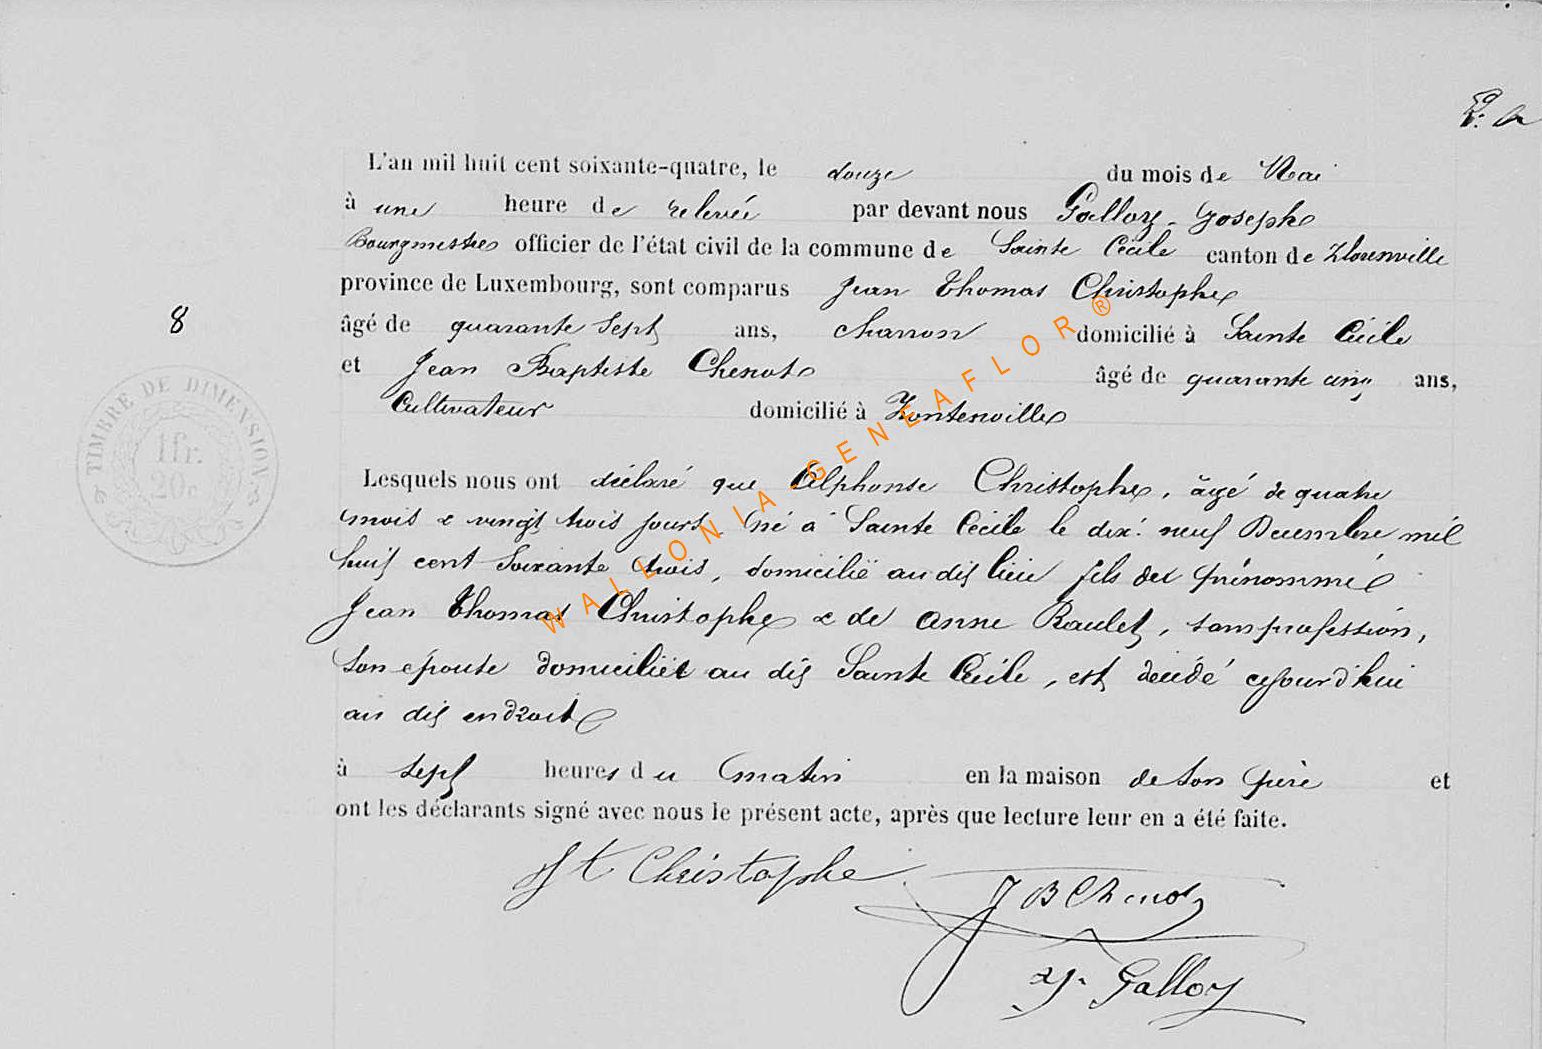 L'an mil huit cent soixante-quatre, le douze du mois de Mai
à une heure de relevée par devant nous Galloy Joseph
Bourgmestre officier de l'état civil de la commune de Sainte Cécile canton de Florenville
province de Luxembourg, sont comparus Jean Thomas Christophe
8
âgé de quarante sept ans, charron domicilié à Sainte Cécile
et Jean Baptiste Chenot âgé de quarante cinq ans,
Cultivateur domicilié à Fontenoille
TIMBRE DE DIMENSION
1fr.
20c
Lesquels nous ont déclaré que Alphonse Christophe, âgé de quatre
mois & vingt trois jours, né à Sainte Cécile le dix-neuf Decembre mil
huit cent Soixante trois, domicilié au dit lieu fils du prénommé
Jean Thomas Christophe & de Anne Raulet, sans profession,
son epouse domiciliée au dit Sainte Cécile, est décédé cejourd'hui
au dit endroit
à sept heures du matin en la maison de son père et
ont les déclarants signé avec nous le présent acte, après que lecture leur en a été faite.
Jt Christophe
J B Chenot
J. Galloy
WALLONIA-GENEAFLOR®